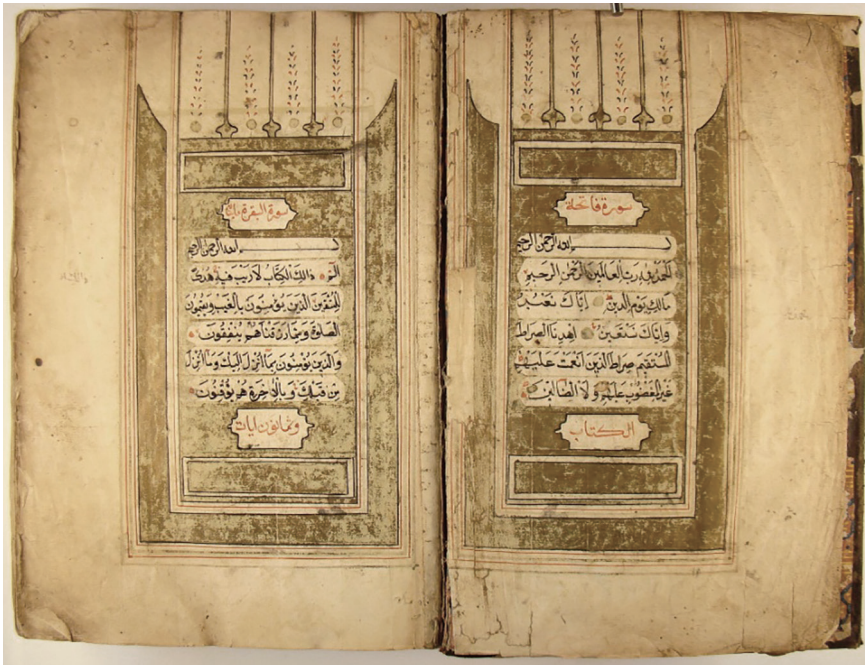 سورة فاتحة
بسم الله الرحمن الرحيم
الحمد لله رب العالمين الرحمن الرحيم
مالك يوم الدين اياك نعبد
واياك نستعين اهدنا الصراط
المستقيم صراط الذين انعمت عليهم
غير المغضوب عليهم ولا الضالين
الكتاب
سورة البقرة
بسم الله الرحمن الرحيم
الم ذالك الكتاب لا ريب فيه هدى
للمتقين الذين يؤمنون بالغيب ويقيمون
الصلوة ومما رزقناهم ينفقون
والذين يؤمنون بما انزل اليك وما انزل
من قبلك وبالاخرة هم يوقنون
وثمانون ايات